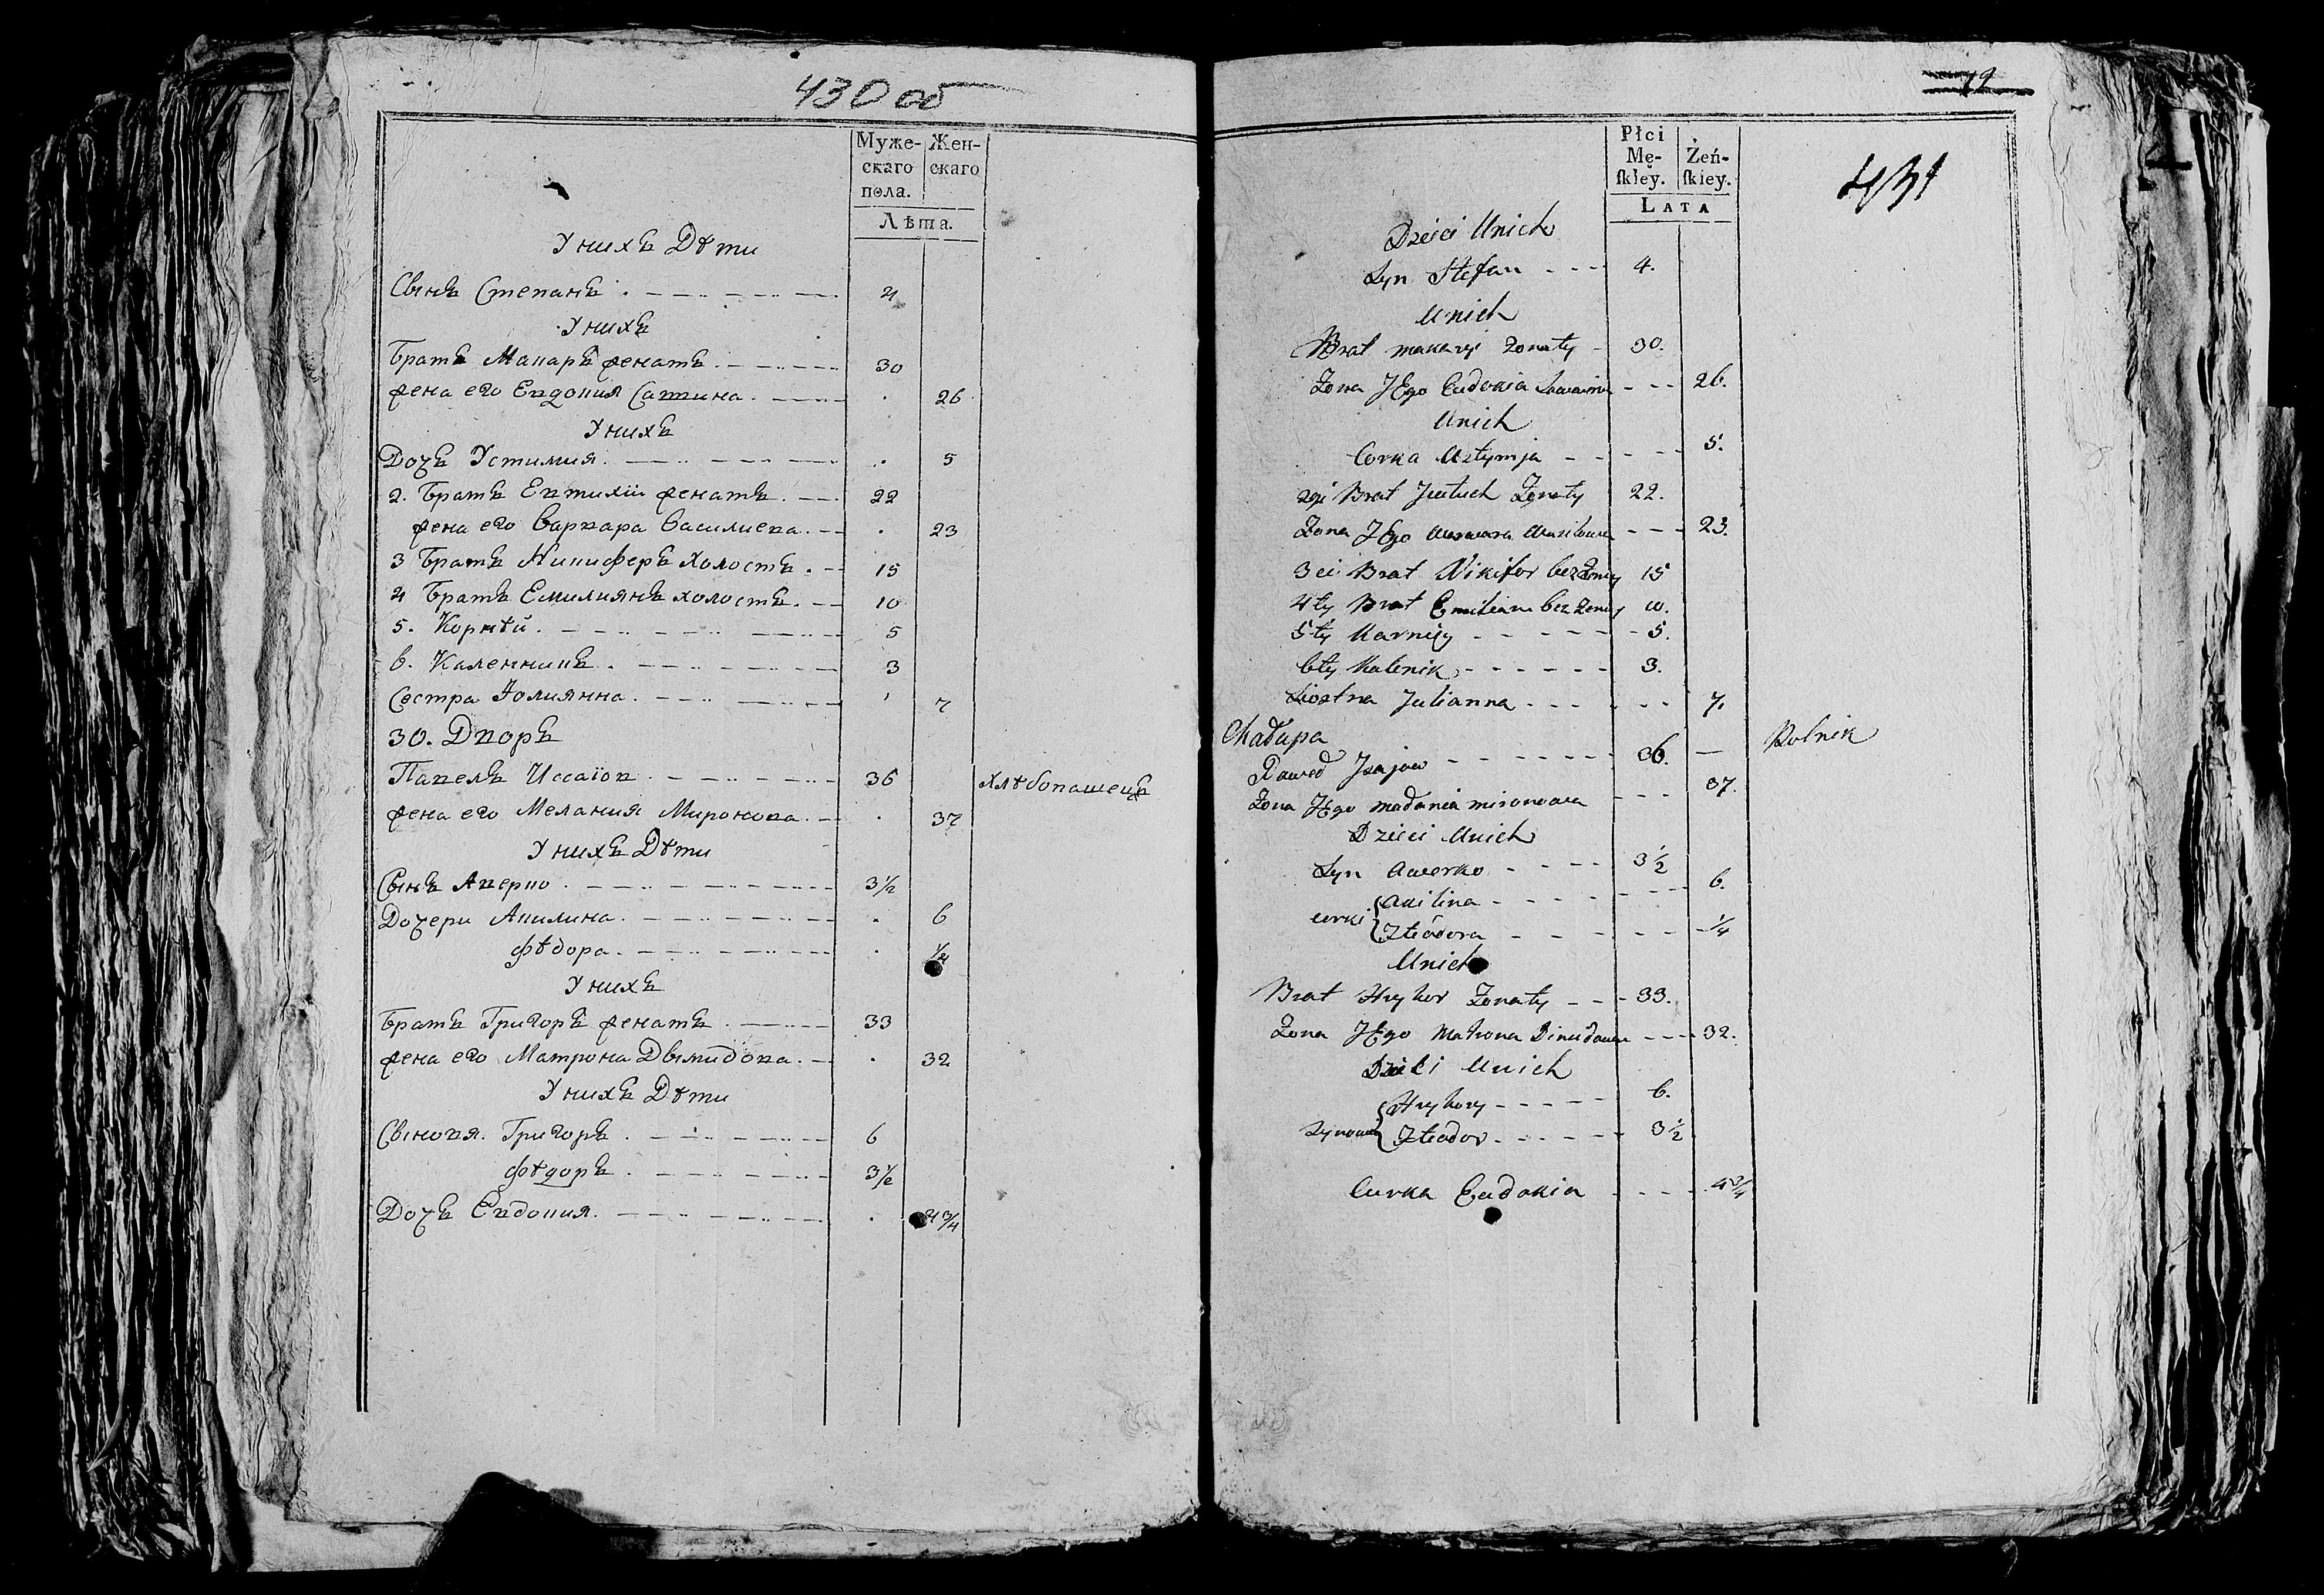 430 об
Муже-
скаго
пола.
Жен-
скаго
Лѣта.
У нихъ Дѣти
Сынъ Степанъ 4
У нихъ
Братъ Макаръ женатъ 30
жена его Евдокия Савина 26
У нихъ
Дочь Устимия 5
2. Братъ Евтихій женатъ 22
жена его Варвара Василиева 23
3 Братъ Никиферъ холостъ 15
4 Братъ Емилиянъ холостъ 10
5. Корнѣй 5
6. Каленникъ 3
Сестра Юлиянна 7
30. Дворъ
Павелъ Иссаіов 36 Хлѣбопашецъ
жена его Мелания Миронова 37
У нихъ Дѣти
Сынъ Аверко 3 1/2
Дочери Акилина 6
Фѣдора 1/4
У нихъ
Братъ Григоръ женатъ 33
жена его Матрона Дымидова 32
У нихъ Дѣти
Сыновя Григоръ 6
Фѣдоръ 3 1/2
Дочь Евдокия 4 3/4
431
Płci
Mę-
ſkiey.
Żeń-
ſkiey.
LATA
Dzieci Unich
Syn Stefan 4.
Unich
Brat Makary Zonaty 30.
Zona JEgo Eudokia 26.
Unich
Corka Ustymja 5.
2gi Brat Jeutuch Zonaty 22.
Zona JEgo Warwara Wasilowa 23.
3ci Brat Nikifor bez Zony 15
4ty Brat Emilian bez zony 10.
5ty Karniy 5.
6ty Kalenik 3.
Siostra Julianna 7.
Chałupa
Paweł Jsajow 36. — Rolnik
Zona JEgo Małania Mironowa 37.
Dzieci Unich
Syn Awerko 3 1/2
Akilina 6.
curki
Fteodora 1/4
Unich
Brat Hryhor Zonaty 33.
Zona JEgo Matrona Dimidowa 32.
Dzieci Unich
Hryhory 6.
Synowie Fteodor 3 1/2
Curka Eudokia 4 3/4